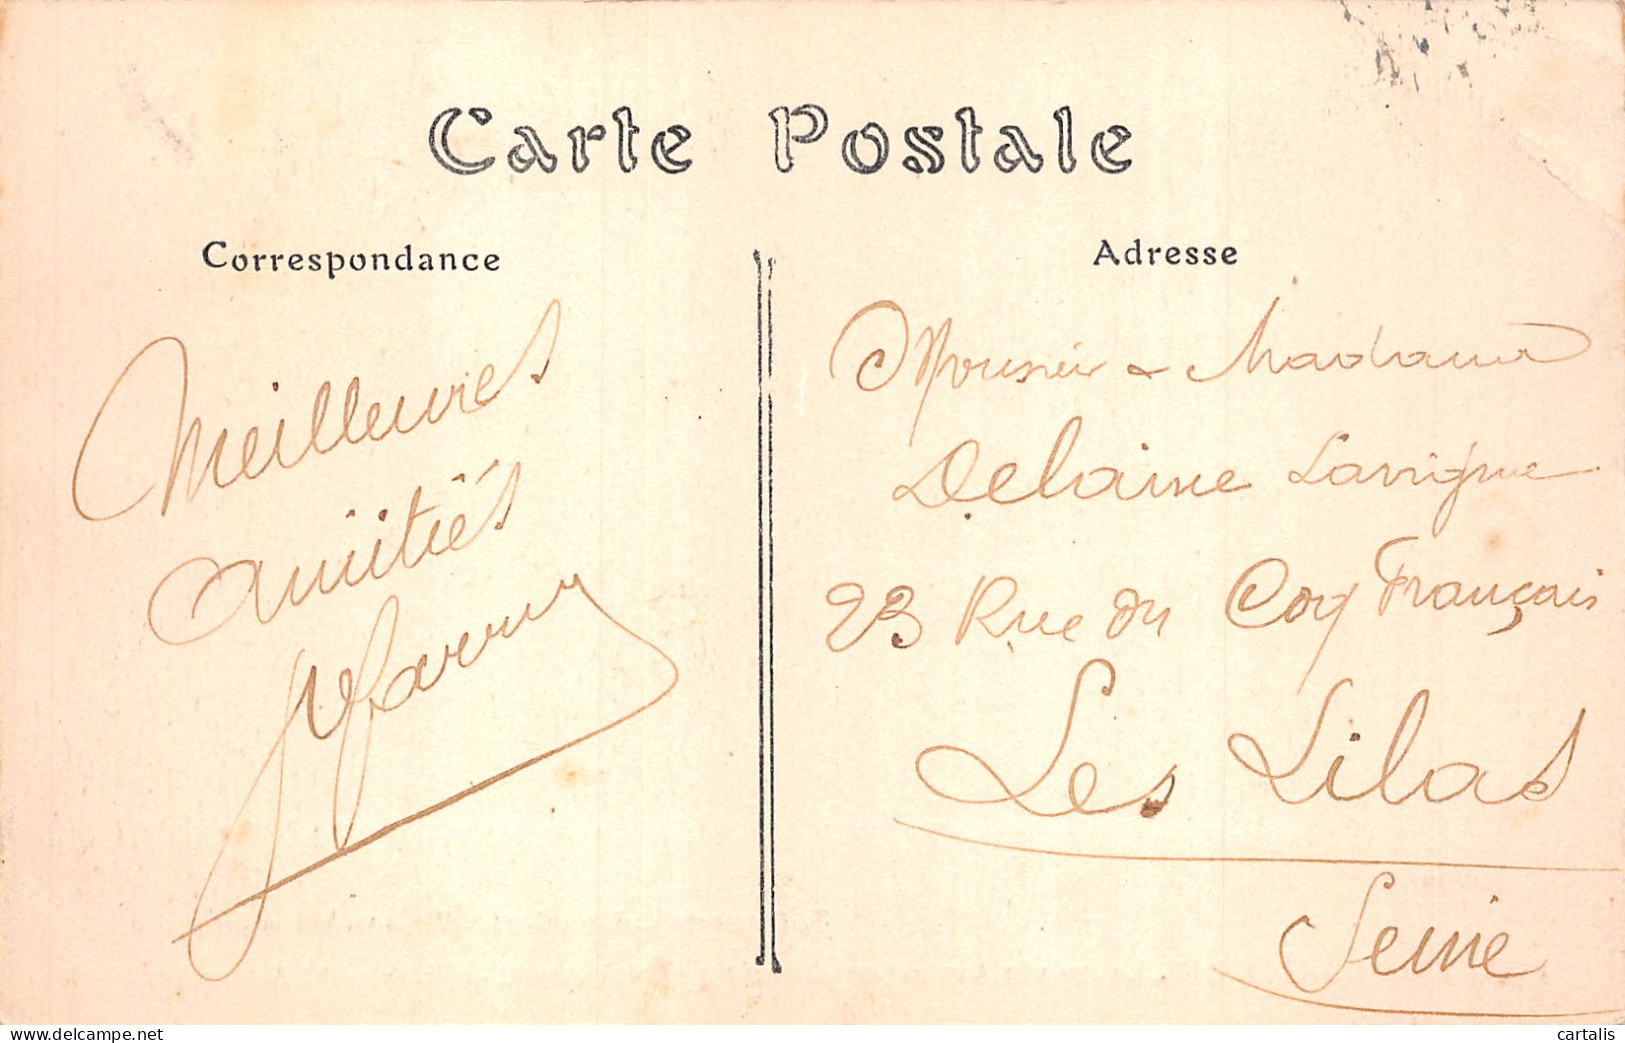 Carte Postale
Correspondance
Meilleures
amitiés
Adresse
Monsieur & Madame
Delaine Lavigne
23 Rue du Coq Français
Les Lilas
Seine
cartalis
www.delcampe.net